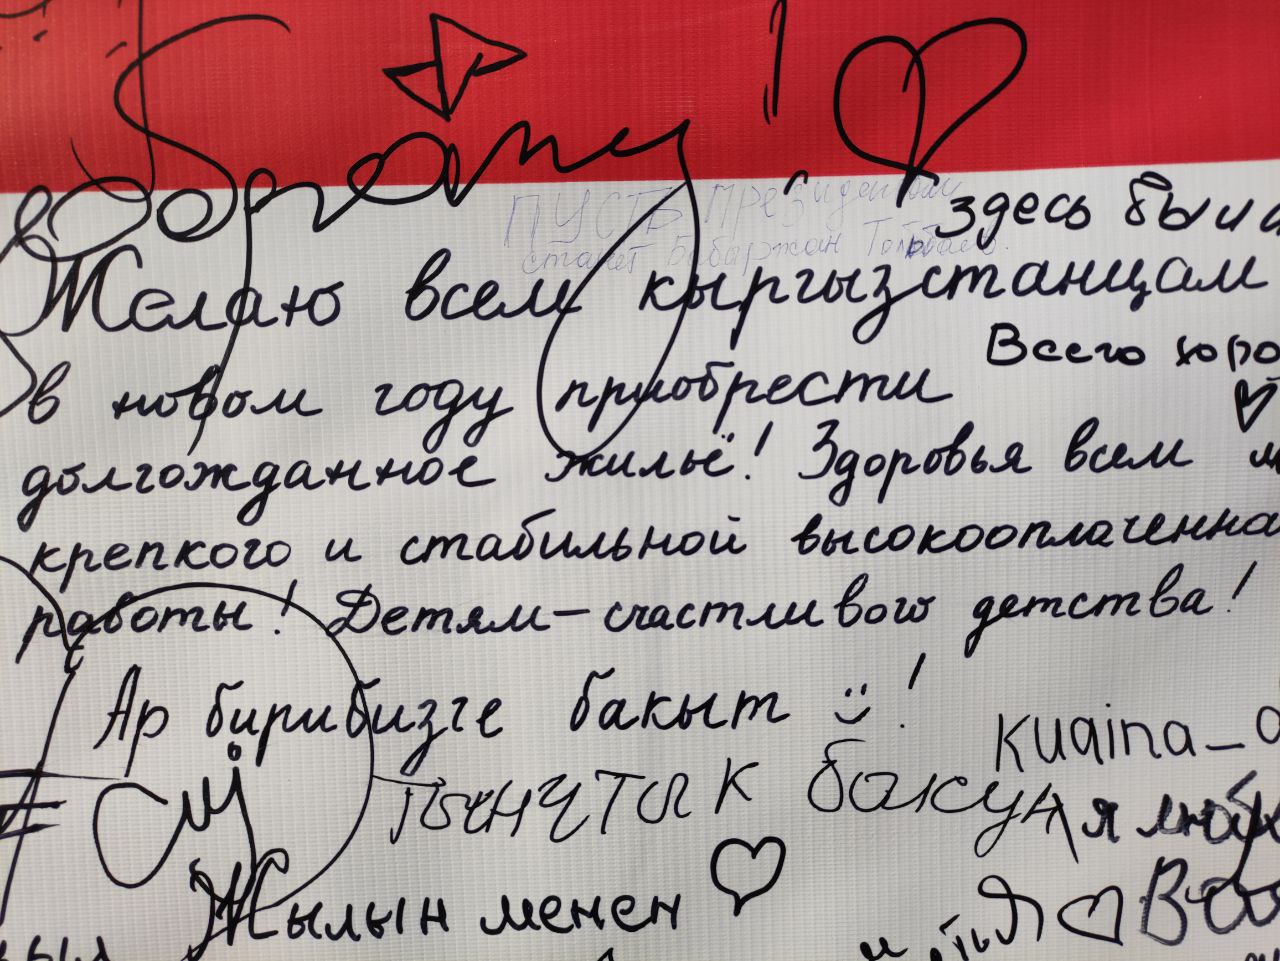 ПУСТЬ президентом
станет Бабаржан Толбаев.
здесь был
Желаю всем кыргызстанцам
Всего хоро
в новом году приобрести
долгожданное жильё! Здоровья всем
крепкого и стабильной высокооплаченно
работы! Детям – счастливого детства!
Ар бирибизге бакыт !
kuaina_a
Тынчтык бакуя
я люблю
Жылын менен
Я